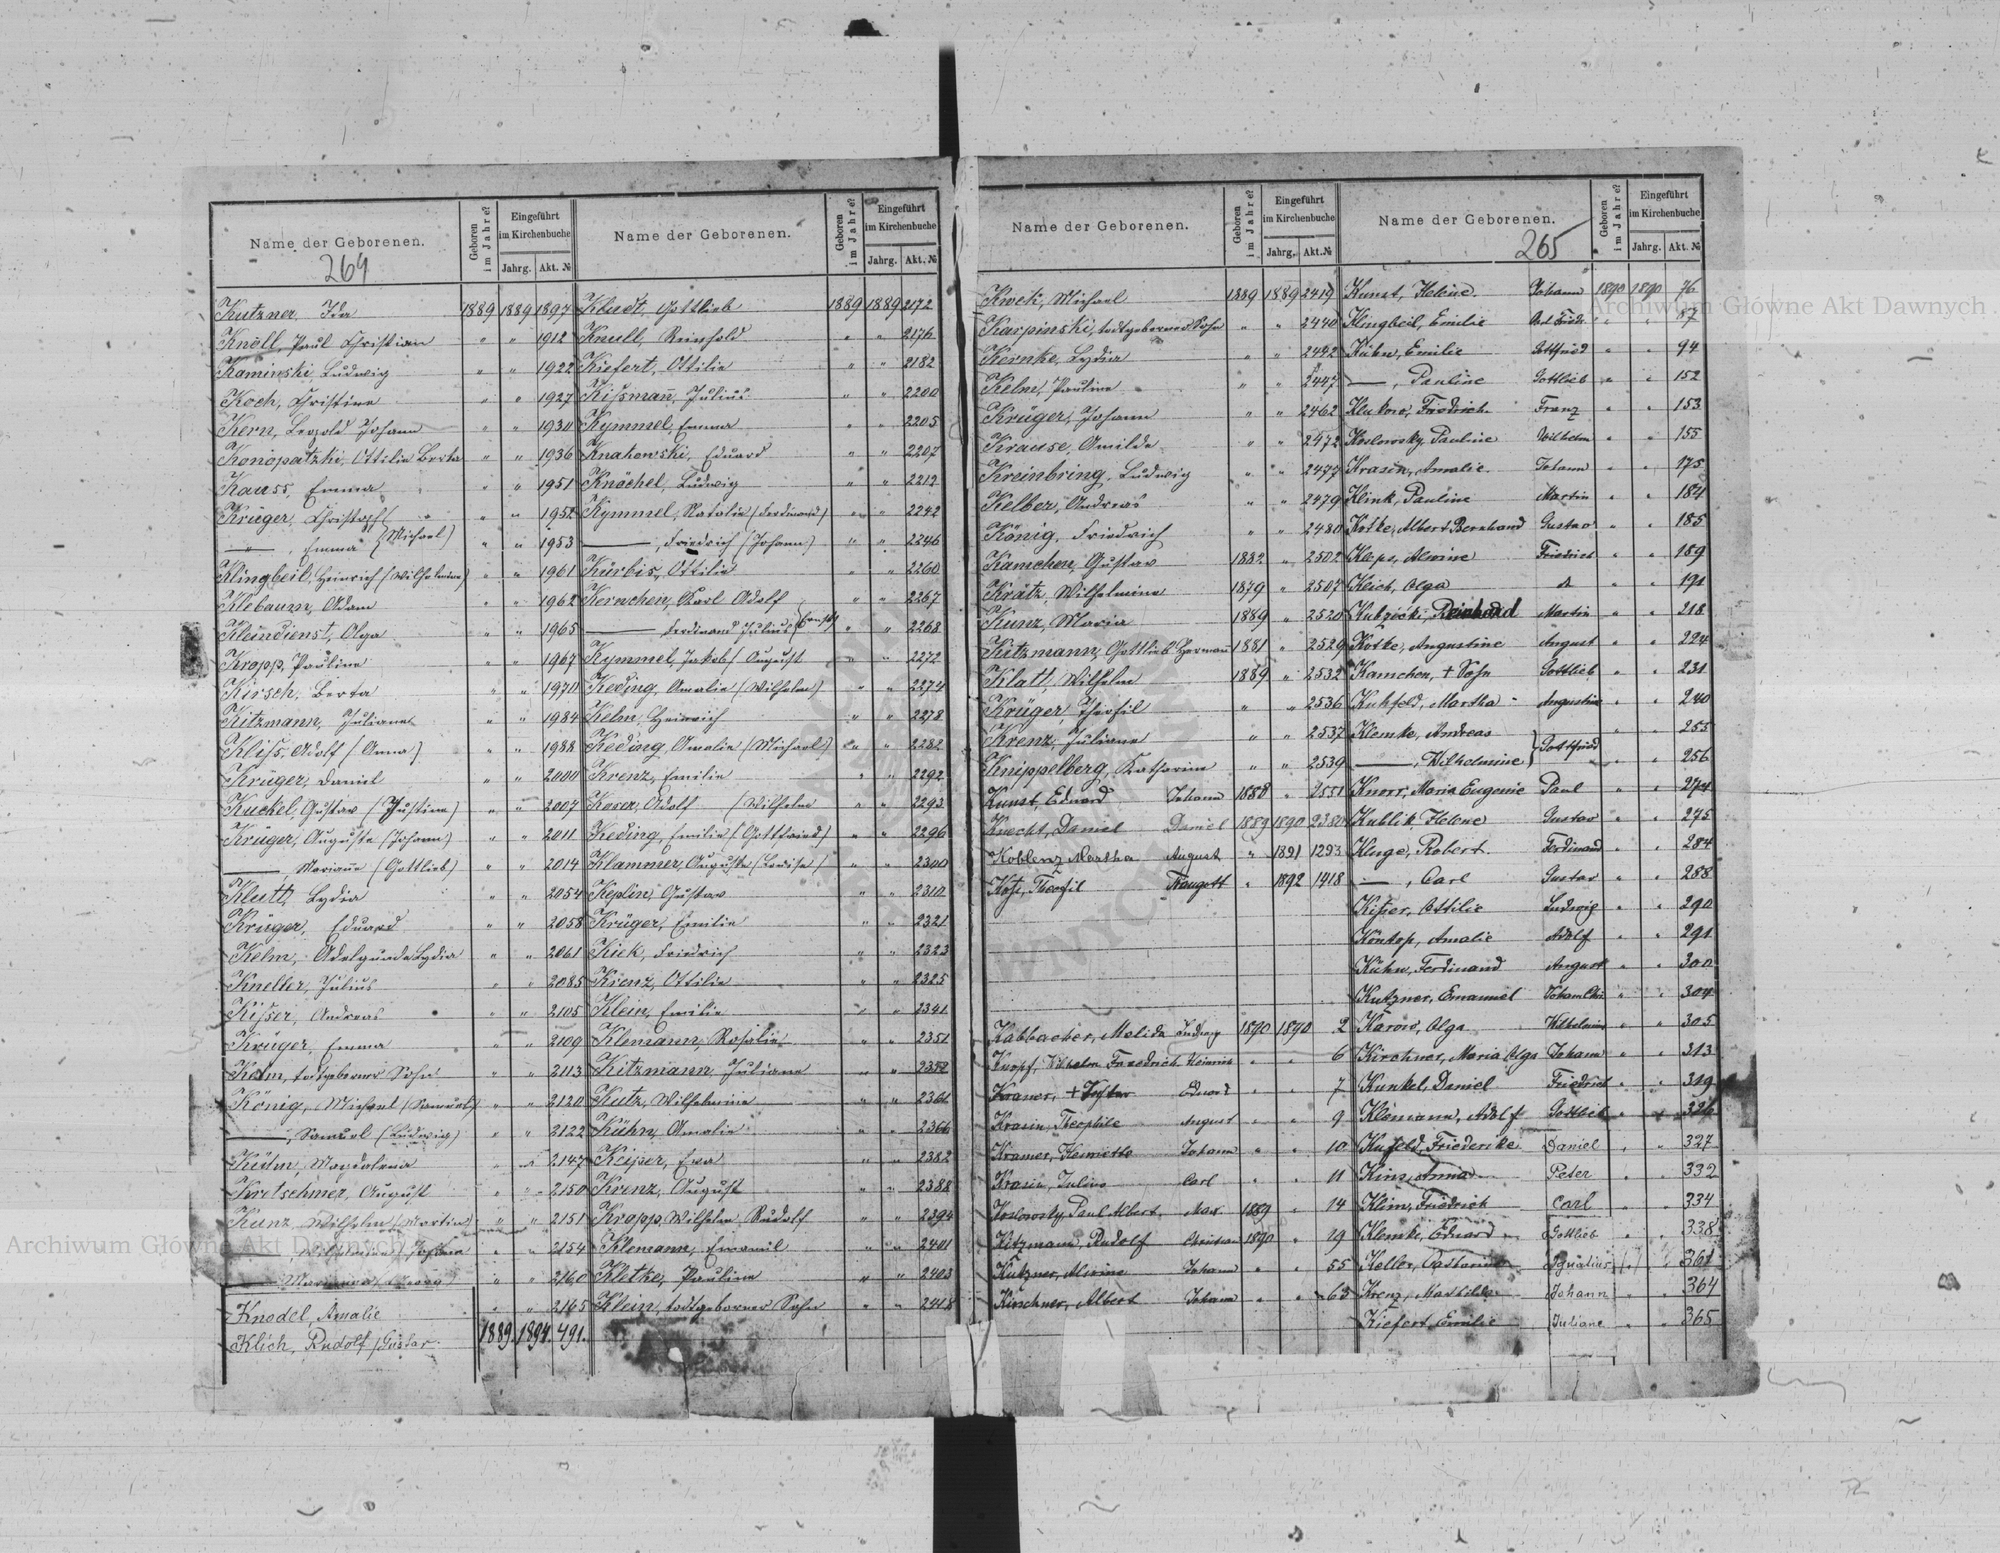 Name der Geborenen.
264
Geboren im Jahre?
Eingeführt im Kirchenbuche
Jahrg. Akt. №
Kutzner, Ida 1889 1889 1897
Knoll, Paul Christian " " 1912
Kaminski, Ludwig " " 1922
Koch, Christine " " 1927
Kern, Leopold Johann " " 1930
Konopatzki, Ottilie Berta " " 1936
Kauss, Emma " " 1951
Krüger, Christoph " " 1952
—, Emma (Michael) " " 1953
Klingbeil, Heinrich (Wilhelmine) " " 1961
Klebaum, Adam " " 1962
Kleindienst, Olga " " 1965
Kropp, Pauline " " 1967
Kirsch, Berta " " 1970
Kitzmann, Juliane " " 1984
Kliss, Adolf (Anna) " " 1988
Krüger, Daniel " " 2000
Kuckel, Gustav (Justine) " " 2007
Krüger, Auguste (Johann) " " 2011
—, Mariane (Gottlieb) " " 2014
Klutt, Lydia " " 2054
Krüger, Eduard " " 2058
Kelm, Adelgunde Lydia " " 2061
Kneller, Julius " " 2085
Kisser, Andreas " " 2105
Krüger, Emma " " 2109
Kelm, todtgeborner Sohn " " 2113
König, Michael (Samuel) " " 2120
—, Samuel (Ludwig) " " 2122
Kühn, Magdalena " " 2147
Kretschmer, August " " 2150
Kunz, Wilhelm (Martin) " " 2151
" " 2154
—, (Georg) " " 2160
Knodel, Amalie " " 2165
Klich, Rudolf /Gustav 1889. 1894. 491.
Name der Geborenen.
Geboren im Jahre?
Eingeführt im Kirchenbuche
Jahrg. Akt. №
Kludt, Gottlieb 1889 1889 2172
Knull, Reinhold " " 2176
Kiefert, Ottilie " " 2182
Kissmañ, Julius " " 2200
Kymmel, Emma " " 2205
Knahowski, Eduard " " 2207
Knöchel, Ludwig " " 2212
Kymmel, Natalie (Ferdinand) " " 2242
—, Friedrich (Johann) " " 2246
Kürbis, Ottilie " " 2260
Kernchen, Karl Adolf " " 2267
—, Ferdinand Julius (Ernst) " " 2268
Kymmel, Jakob / August " " 2272
Keding, Amalie (Wilhelm) " " 2274
Kelm, Heinrich " " 2278
Keding, Amalie (Michael) " " 2282
Krenz, Emilie " " 2292
Koser, Adolf (Wilhelm " " 2293
Keding, Emilie (Gottfried) " " 2296
Klammer, Auguste (Louise) " " 2300
Keplin, Gustav " " 2310
Krüger, Emilie " " 2321
Kiek, Friedrich " " 2323
Krenz, Ottilie " " 2325
Klein, Emilie " " 2341
Klemann, Rosalie " " 2351
Kitzmann, Juliane " " 2352
Kutz, Wilhelmine " " 2361
Kühn, Amalie " " 2366
Keiper, Eva " " 2382
Krenz, August " " 2388
Kropp, Wilhelm Rudolf " " 2394
Klemann, Emanuil " " 2401
Kletke, Pauline " " 2403
Klein, todtgeborner Sohn " " 2418
Name der Geborenen.
Geboren im Jahre?
Eingeführt im Kirchenbuche
Jahrg. Akt. №
Michael 1889 1889 2419
Karpinski, todtgeborner Sohn " " 2440
Kernke, Lydia " " 2442
Kelm, Pauline " " 2447
Krüger, Johann " " 2462
Krause, Amilde " " 2472
Kreinbring, Ludwig " " 2477
Kelber, Andreas " " 2479
König, Friedrich " " 2480
Kamchen, Gustav 1882 " 2502
Krätz, Wilhelmine 1879 " 2507
Kunz, Maria 1889 " 2520
Kitzmann, Gottlieb Herman 1881 " 2529
Klatt, Wilhelm 1889 " 2532
Krüger, Theofil " " 2536
Krenz, Juliane " " 2537
Knippelberg, Katharine " " 2539
Kunst, Eduard Johann 1888 " 2551
Knecht, Daniel Daniel 1889 1890 2380
Koblenz, Martha August " 1891 1293
Theofil Traugott " 1892 1418
Kabbacher, Melida Ludwig 1890 1890 2
Knopf, Wilhelm Friedrich Heinrich " " 6
Kramer, + Eduard " " 7
Krasin, Theophile August " " 9
Kramer, Henriette Johann " " 10
Krasin, Julius Carl " " 11
Koslowsky, Paul Albert Max. 1889 " 14
Kitzmann, Rudolf Christian 1890 " 19
Kutzner, Alwine Johann " " 55
Kirschner, Albert Johann " " 63
Name der Geborenen.
265
Geboren im Jahre?
Eingeführt im Kirchenbuche
Jahrg. Akt. №
Kunst, Helene. Johann 1890 1890 76
Klingbeil, Emilie " " 87
Kühn, Emilie Gottfried " " 94
—, Pauline Gottlieb " " 152
Klukow, Friedrich Franz " " 153
Koslowsky, Pauline Wilhelm " " 155
Krasin, Amalie Johann " " 175
Klink, Pauline Martin " " 184
Kotke, Albert Bernhard Gustav " " 185
Klaps, Alwine Friedrich " " 189
Klich, Olga " " 191
Kubzicki, Reinhold Martin " " 218
Kotke, Augustine August " " 224
Kamchen, + Sohn Gottlieb " " 231
Kuhfeld, Martha Augustin " " 240
Klemke, Andreas " " 255
—, Wilhelmine } Gottfried " " 256
Knorr, Maria Eugenie Paul " " 274
Kublik, Helene Gustav " " 275
Kluge, Robert Ferdinand " " 284
—, Carl Gustav " " 288
Kisser, Ottilie Ludwig " " 290
Kontop, Amalie Adolf " " 291
Kühn, Ferdinand August " " 300
Kutzner, Emanuel " " 304
Karow, Olga Wilhelmine " " 305
Kirchner, Maria Olga Johann " " 313
Kunkel, Daniel Friedrich " " 319
Klemann, Adolf Gottlieb " " 326
Kufeld, Friederike Daniel " " 327
Anna Peter " " 332
Klim, Friedrich Carl " " 334
Klemke, Eduard Gottlieb " " 338
Keller, Ignatius " " 361
Krenz, Mathilde Johann " " 364
Kiefert, Emilie Juliane " " 365
Archiwum Główne Akt Dawnych
Archiwum Główne Akt Dawnych